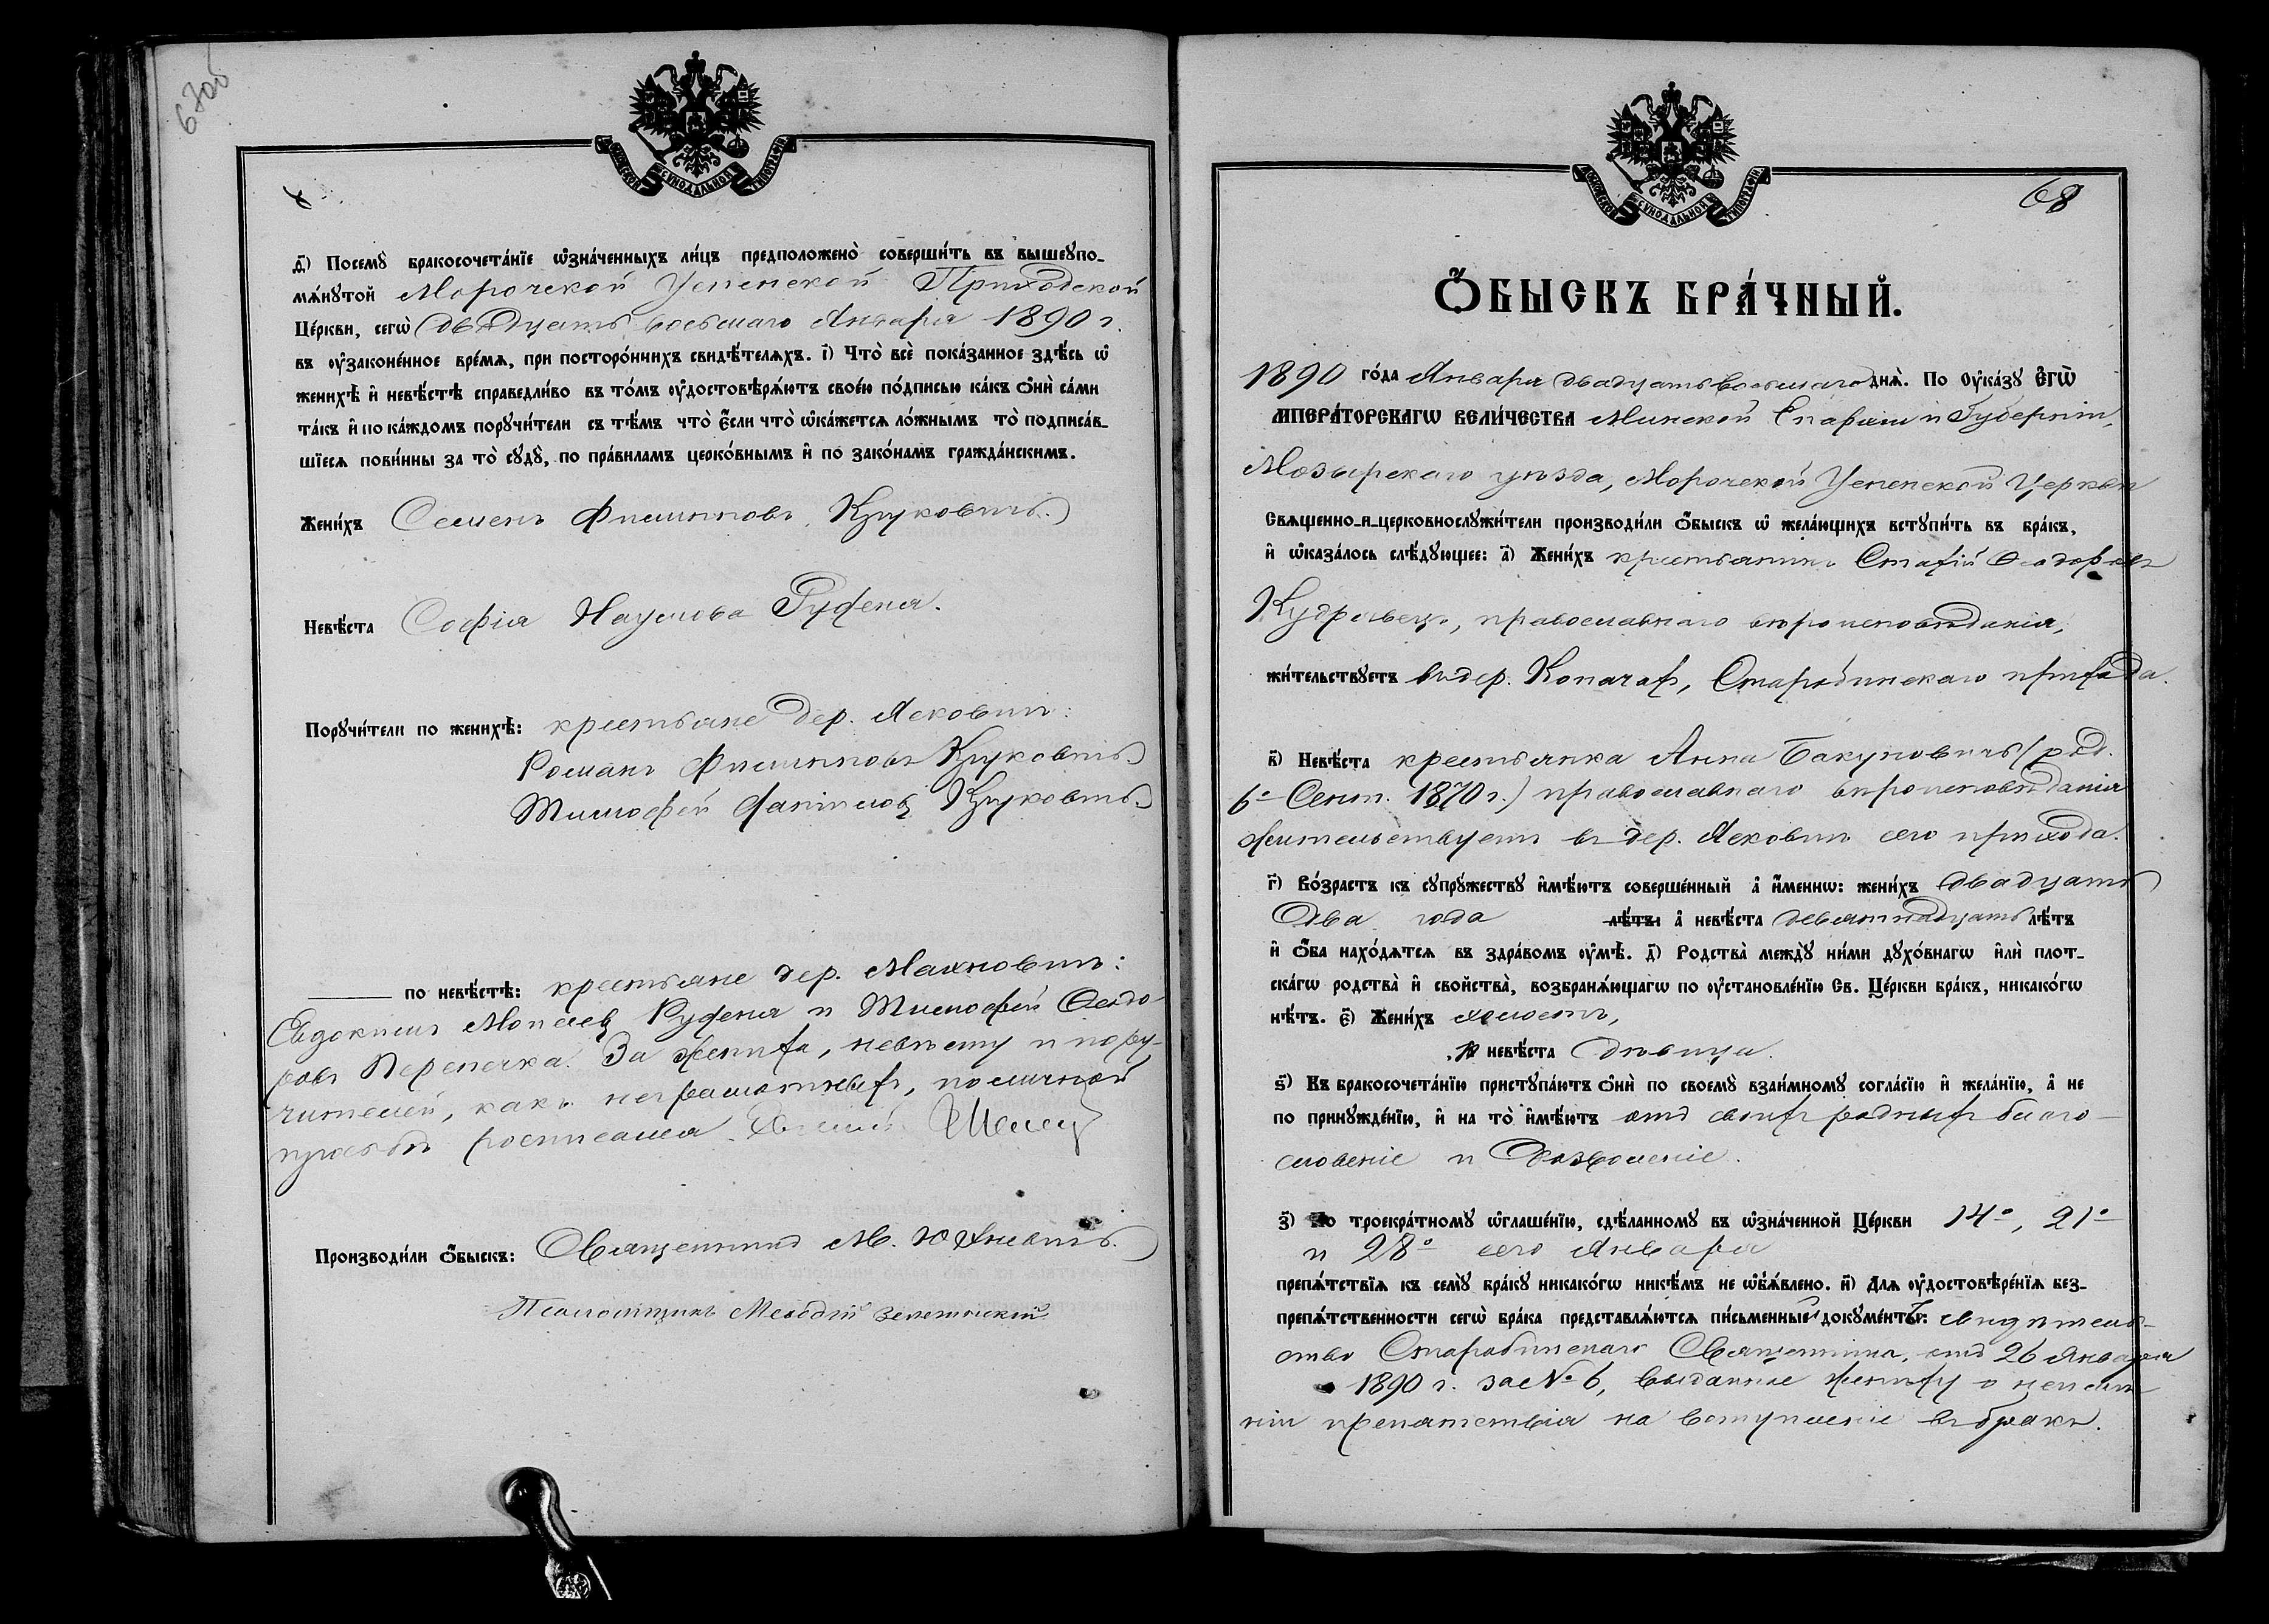 67об
МОСКОВСКОЙ СУНОДАЛЬНОЙ ТИПОГРАФІИ
д҃) Посемꙋ̀ бракосочета́нїе ѡ҆зна́ченныхъ ли́цъ предположено̀ соверши́ть въ вышеꙋпо-
мѧ́нꙋтой Морочской Успенской Приходской
Це́ркви, сегѡ̀ двадцать восьмаго Января 1890 г.
въ ᲂу҆законе́нное вре́мѧ, при посторо́нчихъ свидѣ́телѧхъ. і҃) Что̀ всѐ пока́занное здѣ́сь ѡ҆
женихѣ̀ и҆ невѣ́стѣ справедли́во въ то́мъ ᲂу҆достовѣрѧ́ютъ свое́ю по́дписью ка́къ ѻ҆нѝ са́ми
та́къ и҆ по ка́ждомъ порꙋчи́тели съ тѣ́мъ что̀ є҆́сли что̀ ѡ҆ка́жетсѧ ло́жнымъ то̀ подписа́в-
шїесѧ пови́нны за то̀ сꙋдꙋ̀, по пра́виламъ церко́внымъ и҆ по зако́намъ гражда́нскимъ.
Жени́хъ Семенъ Филиповъ Круковичъ.
Невѣ́ста Софія Наумова Руденя.
Порꙋчи́тели по женихѣ̀: крестьяне дер. Ясковичъ:
Романъ Филиповъ Круковичъ.
Тимофей Круковичъ.
по невѣ́стѣ: крестьяне дер. Махновичъ:
Евдокимъ Руденя и Тимофей Ѳеодо-
ровъ Перепечка. За жениха, невѣсту и пору-
чителей, какъ неграмотныхъ, по личной
просьбѣ росписался
Производи́ли ѻ҆́быскъ: Священникъ М. Юхневичъ.
Псаломщикъ Меѳодій
68
МОСКОВСКОЙ СУНОДАЛЬНОЙ ТИПОГРАФІИ
Ѻ҆́БЫСКЪ БРА́ЧНЫЙ.
1890 го́да Января двадцать восьмаго днѧ̀. По ᲂу҆ка́зꙋ є҆гѡ̀
и҆мпера́торскагѡ вели́чества Минской Епархіи и Губерніи,
Мозырскаго уѣзда, Морочской Успенской Церкви
Свѧщенно-и-церковнослꙋжи́тели производи́ли ѻ҆́быскъ ѡ҆ жела́ющихъ встꙋпи́ть въ бра́къ,
и҆ ѡ҆каза́лось слѣ́дꙋющее: а҃) Жени́хъ крестьянинъ Стахій Ѳеодоровъ
Кудравецъ, православнаго вѣроисповѣданія,
жи́тельствꙋетъ въ дер. Копачахъ, Старобинскаго прихода.
в҃) Невѣ́ста крестьянка Анна Бакуновичъ (род.
6º Сент. 1870 г.) православнаго вѣроисповѣданія
жительствуетъ въ дер. Ясковичъ сего прихода.
г҃) Во́зрастъ къ сꙋпрꙋ́жествꙋ и҆мѣ́ютъ соверше́нный а҆ и҆́меннѡ: жени́хъ двадцать
два года лѣ́тъ: а҆ невѣ́ста девятнадцать лѣ́тъ
и҆ ѻ҆́ба нахо́дѧтсѧ въ здра́вомъ ᲂу҆мѣ̀. д҃) Родства̀ междꙋ̀ ни́ми дꙋхо́внагѡ и҆лѝ плот-
ска́гѡ родства̀ и҆ сво́йства̀, возбранѧ́ющагѡ по ᲂу҆становле́нїю Св. Це́ркви бра́къ, никако́гѡ
нѣ́тъ. є҃) Жени́хъ холостъ,
а҆ невѣ́ста дѣвица.
ѕ҃) Къ бракосочета́нїю пристꙋпа́ютъ ѻ҆нѝ по своемꙋ̀ взаи́мномꙋ согла́сїю и҆ жела́нїю, а҆ не
по принꙋжде́нїю, и҆ на то̀ и҆мѣ́ютъ отъ своихъ родныхъ благо-
словеніе и дозволеніе.
з҃) По троекра́тномꙋ ѡ҆глаше́нїю, сдѣ́ланномꙋ въ ѡ҆зна́ченной Це́ркви 14º, 21º
и 28º сего Января
препѧ́тствїѧ къ семꙋ̀ бра́кꙋ никако́гѡ никѣ́мъ не ѡ҆б̾ѧ́влено. и҃) Длѧ ᲂу҆достовѣре́нїѧ без-
препѧ́тственности сегѡ̀ бра́ка представлѧ́ютсѧ пи́сьменный докꙋме́нтъ: свидѣтель-
ство Старобинскаго Священника, отъ 26 Января
1890 г. за № 6, выданное жениху о неимѣ-
ніи препятствія на вступленіе въ бракъ.